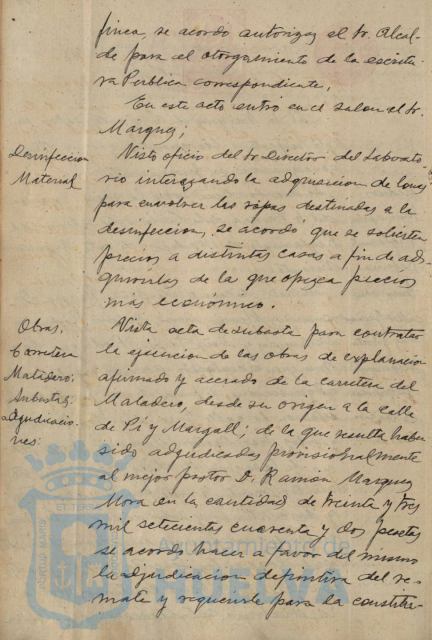 finca, se acordo autorizar al Sr. Alcal-
de para el otorgamiento de la escritu-
ra Publica correspondiente,
En este acto entró en el salon el Sr.
Marquez;
Desinfeccion
Material
Visto oficio del Sr Director del Laborato-
rio interesando la adquisicion de lonas
para envolver las ropas destinadas a la
desinfeccion, se acordó que se soliciten
precios a distintas casas a fin de ad-
quirirlas de la que ofrezca precios
más económico.
Obras.
Carretera
Matadero.
Subastas.
Adjudicacio-
nes.
Vista acta de subasta para contratar
la ejecucion de las obras de explanacion
afirmado y acerado de la carretera del
Matadero, desde su origen a la calle
de Pi y Margall; de la que resulta haber
sido adjudicadas provisionalmente
al mejor postor D. Ramón Marquez
Mora en la cantidad de treinta y tres
mil setecientas cuarenta y dos pesetas
se acordo hacer a favor del mismo
la adjudicacion definitiva del re-
mate y requerirle para la constitu-
Ayuntamiento de
HUELVA